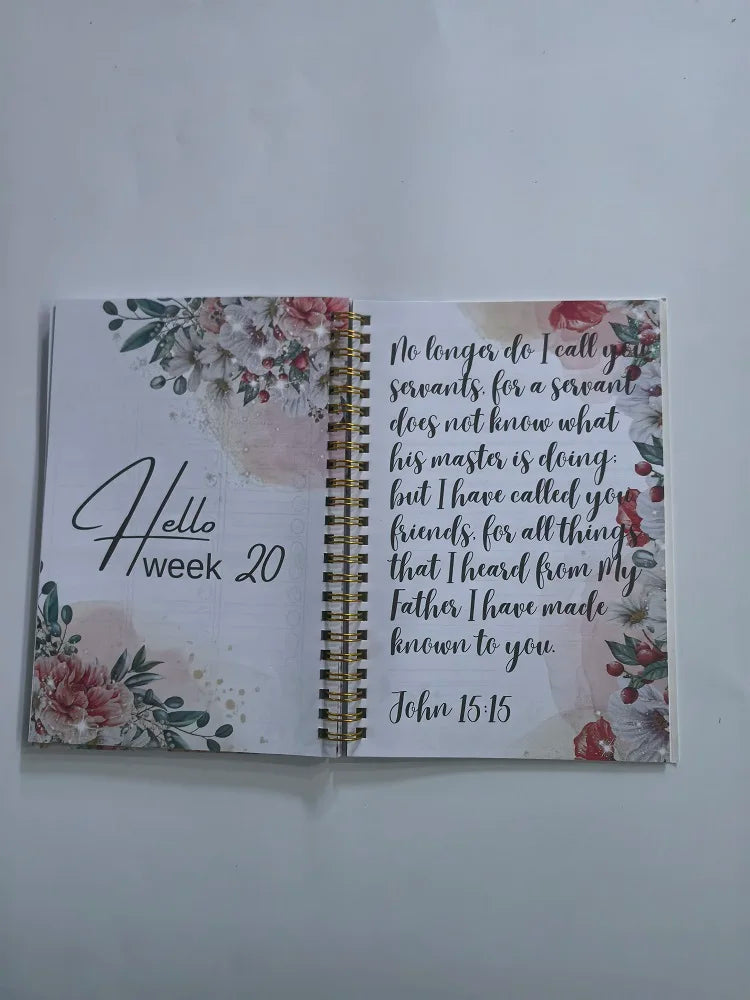 Hello
week 20
No longer do I call you
servants, for a servant
does not know what
his master is doing;
but I have called you
friends, for all things
that I heard from My
Father I have made
known to you.
John 15:15